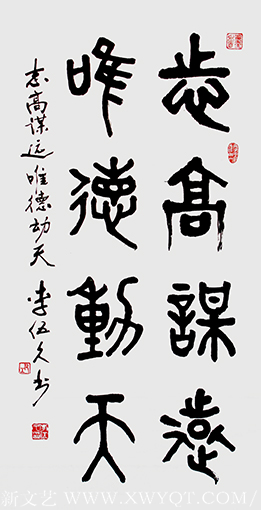 志高謀遠
唯德動天
志高谋远唯德动天 李伍久书
新文艺 WWW.XWYQT.COM/